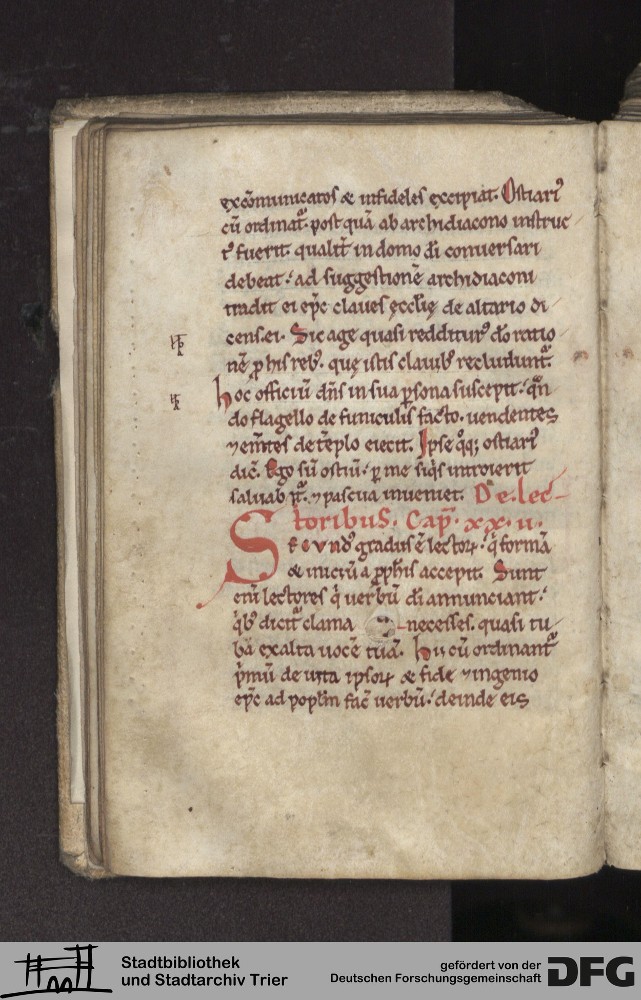 excōmunicatos & infideles excipiāt. Ostiariꝰ
cū ordinat᷑. postquā ab archidiacono instruc
tꝰ fuerit. qualit̄ in domo dī conversari
debeat. ad suggestionē archidiaconi
tradit ei ep̄c claves ęccl̄ię de altario di
cens. ei. Sic age quasi redditurꝰ dō ratio
nē ꝓ his rebꝰ. quę istis clavibꝰ recludunt᷑.
hoc officiū dn̄s in sua ꝑsona suscepit. qn̄
do flagello de funiculis facto. vendentes
⁊ em̄tes de tēplo eiecit. Ipse qq; ostiariꝰ
dic̄. Ego sū ostiū. ꝑ me siq̄s introierit
salvab᷑. ⁊ pascua inveniet. De lec
toribus. Cap̄. xx.ii.
Secundꝰ gradus ē lectoꝝ. q̄ formā
& iniciū a ꝓph̄is accepit. Sunt
eni᷑ lectores q̄ verbū dī annunciant.
qͥbꝰ dicit᷑ clama necesses. quasi tu
bā exalta vocē tuā. hii cū ordinant᷑
pͥmū de vita ipsoꝝ & fide ⁊ ingenio
ep̄c ad popl̄m fac̄ verbū. deinde eis
Stadtbibliothek
und Stadtarchiv Trier
gefördert von der
Deutschen Forschungsgemeinschaft
DFG